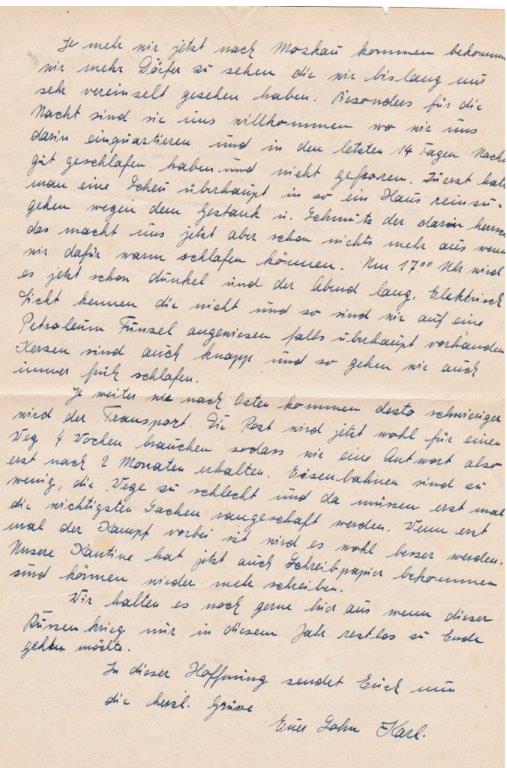 Je mehr wir jetzt nach Moskau kommen bekommen
wir mehr Dörfer zu sehen die wir bislang nur
sehr vereinzelt gesehen haben. Besonders für die
Nacht sind sie uns willkommen wo wir uns
darin einquartieren und in den letzten 14 Tagen Nachts
gut geschlafen haben und nicht gefroren. Zuerst hat
man eine Scheu überhaupt in so ein Haus reinzu-
gehen wegen dem Gestank u. Schmutz der darin herrscht
das macht uns jetzt aber schon nichts mehr aus wenn
wir dafür warm schlafen können. Um 17°° Uhr wird
es jetzt schon dunkel und der Abend lang. Elektrisch
Licht kennen die nicht und so sind wir auf eine
Petroleum Funzel angewiesen falls überhaupt vorhanden
Kerzen sind auch knapp und so gehen wir auch
immer früh schlafen.
Je weiter wir nach Osten kommen desto schwieriger
wird der Transport. Die Post wird jetzt wohl für einen
Weg 4 Wochen brauchen sodass wir eine Antwort also
erst nach 2 Monaten erhalten. Eisenbahnen sind zu
wenig, die Wege zu schlecht und da müssen erst mal
die wichtigsten Sachen rangeschaft werden. Wenn erst
mal der Kampf vorbei ist wird es wohl besser werden.
Unsere Kantine hat jetzt auch Schreibpapier bekommen
und können wieder mehr schreiben.
Wir halten es noch gerne hier aus wenn dieser
Russenkrieg nur in diesem Jahr restlos zu Ende
gehen möchte.
In dieser Hoffnung sendet Euch nun
die herzl. Grüsse
Euer Sohn Karl.